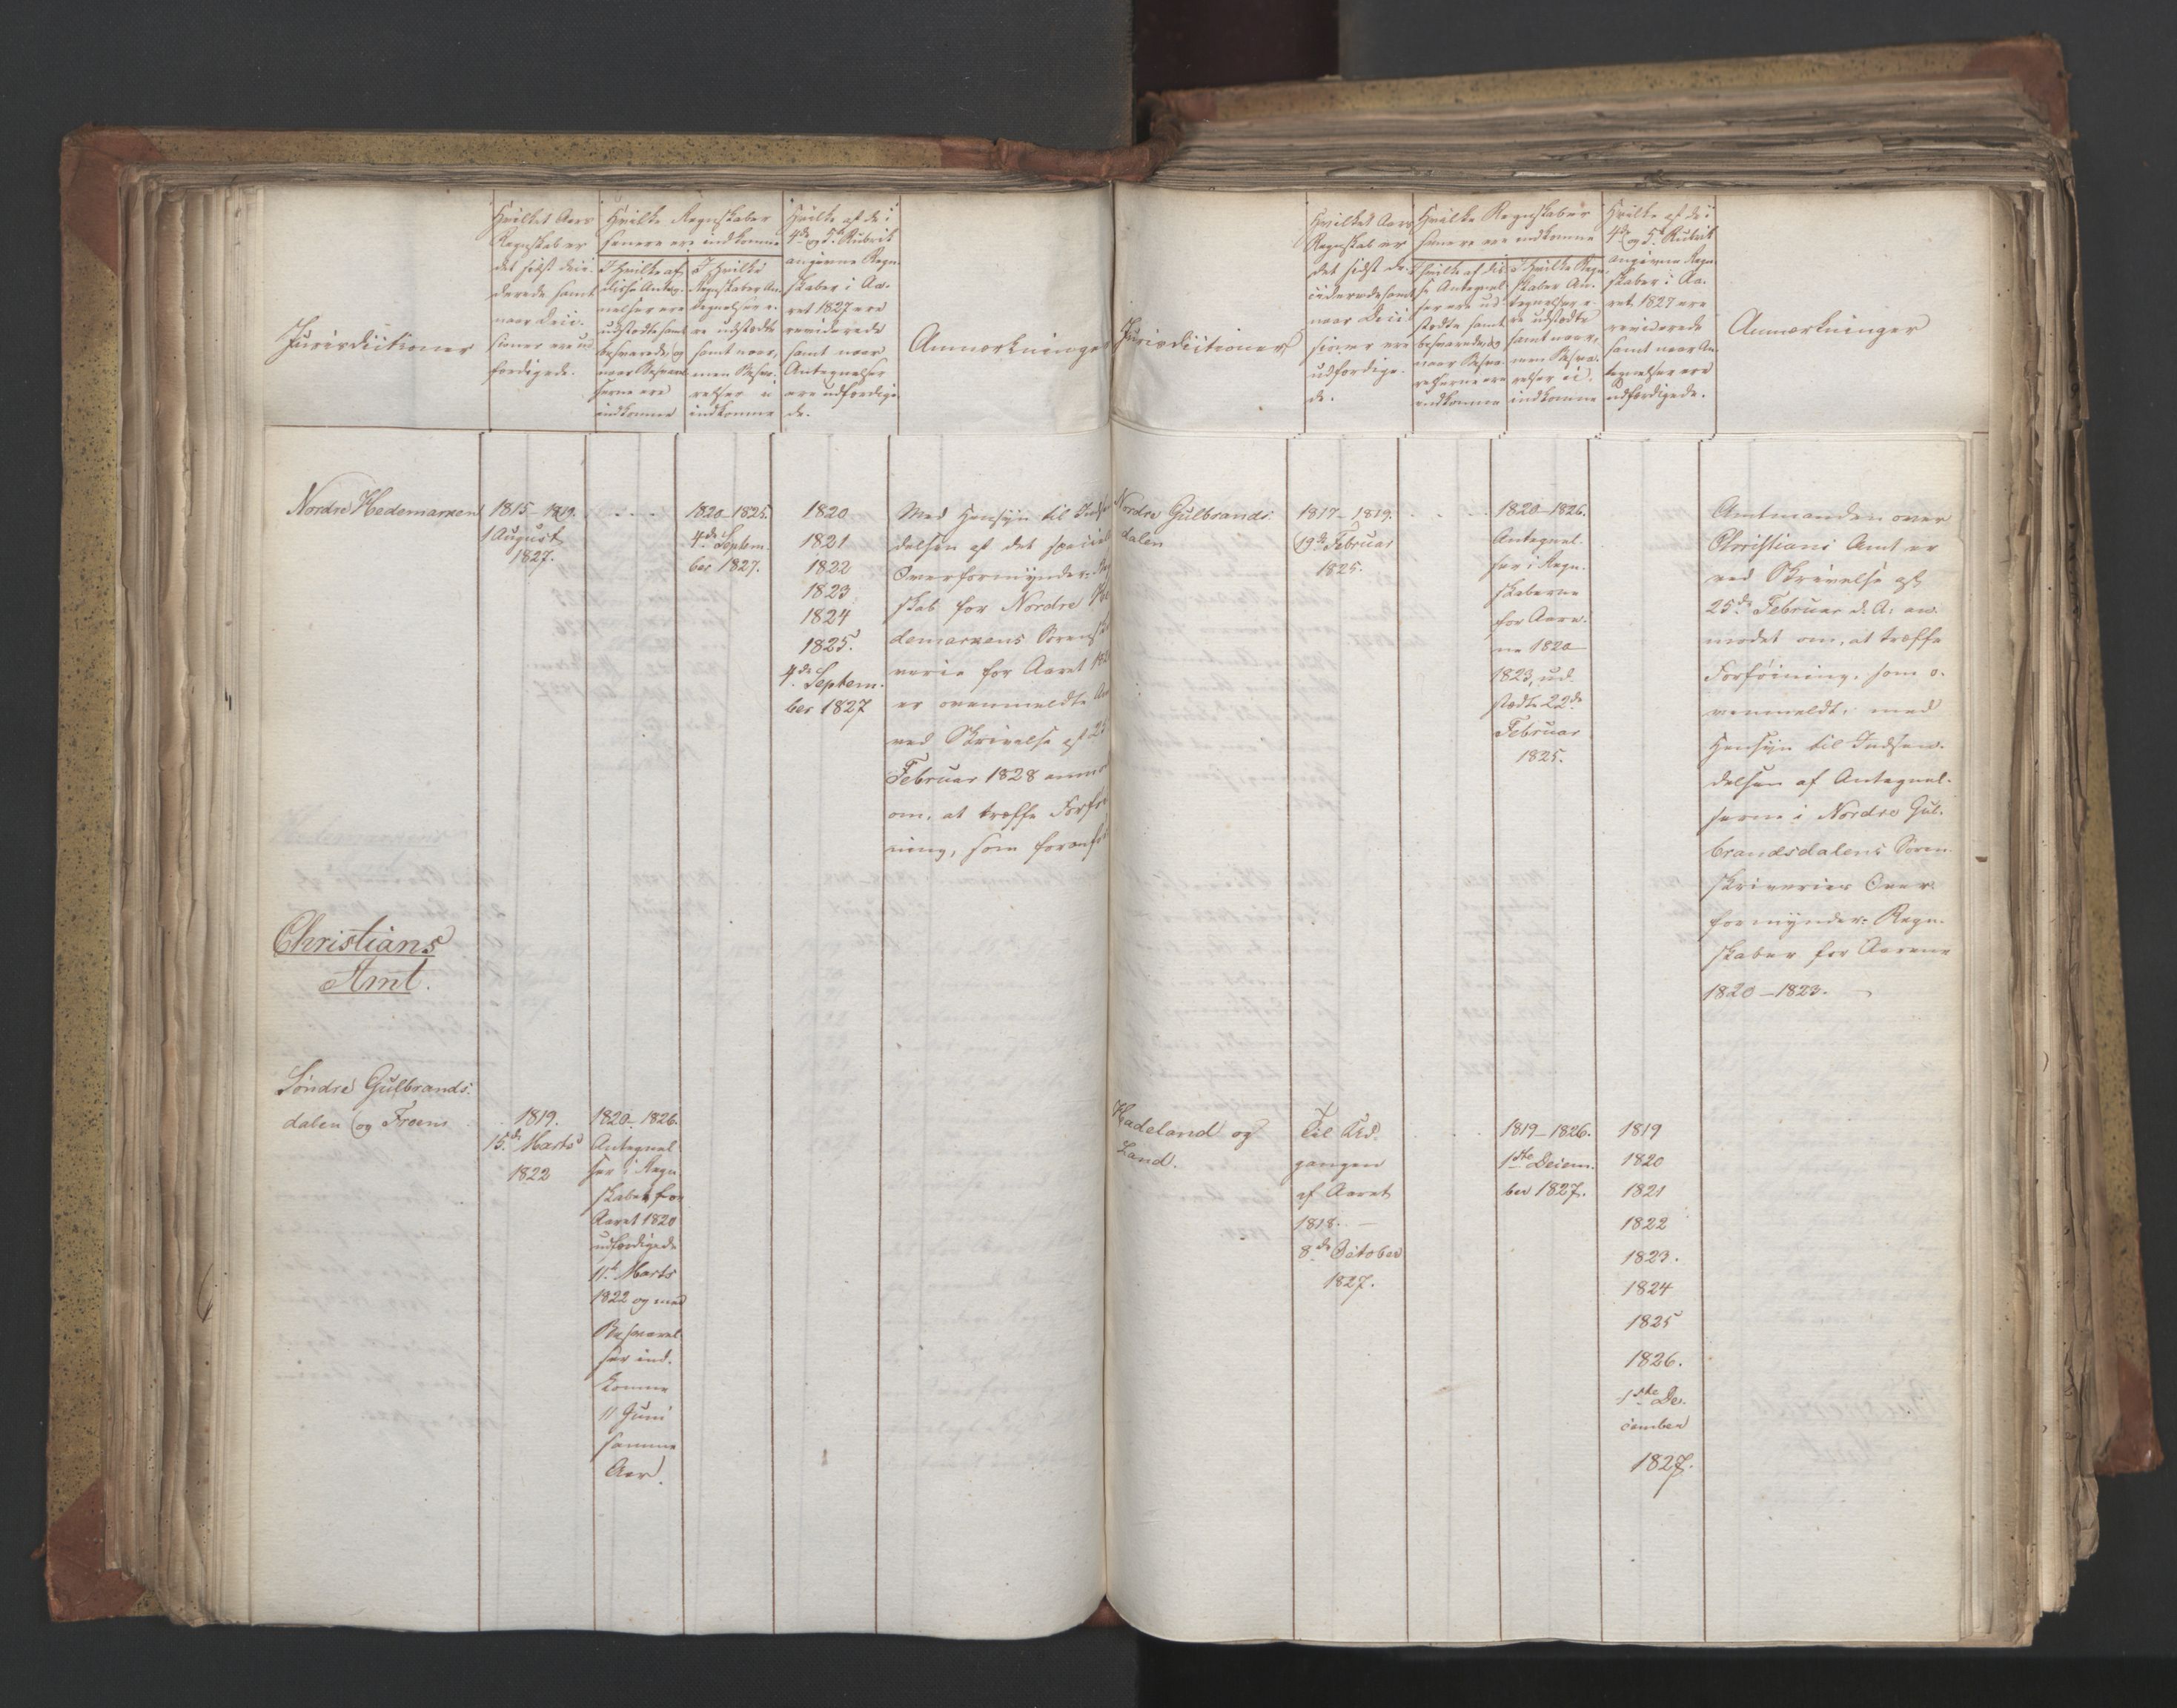 Jurisdictioner
Hvilket Aars
Regnskab er
det sidst deci-
derede samt
naar Deci-
sioner ere ud
færdigede.
Hvilke Regnskaber
senere ere indkomne
I hvilke af
disse Anteg-
nelser ere
udstædte samt
besvarede, og
naar Besvarel-
serne ere
indkomne
I hvilke
Regnskaber An-
tegnelser e-
re udstædte
samt naar,
men Besva-
relser ei
indkomne
Hvilke af de i
4de og 5te Rubrik
angivne Regn-
skaber i Aa-
ret 1827 ere
reviderede
samt naar
Antegnelser
ere udfærdige-
de.
Anmærkninger
Nordre Hedemarken
1815–1819.
1 August
1827.
1820–1825.
4de Septem-
ber 1827.
1820
1821
1822
1823
1824
1825.
4de Septem-
ber 1827
Med Hensyn til Indsen
delsen af det specielle
Overformynder-Regn
skab for Nordre He
demarkens Sorenskri
verie for Aaret
er ovenmeldte Amt
ved Skrivelse af 25
Februar 1828 anmo
om, at træffe Forføi
ning, som foranført
Christians
Amt.
Søndre Gulbrands-
dalen og Froen
1819.
15de Marts
1822
1820–1826.
Antegnel
ser i Regn
skabet for
Aaret 1820
udfærdigede
11te Marts
1822 og med
Besvarel
ser ind-
komne
11 Juni
samme
Aar.
Jurisdictioner
Hvilket Aars
Regnskab er
det sidst de-
ciderede samt
naar Deci
sioner ere
udfærdige-
de.
Hvilke Regnskaber
senere ere indkomne
I hvilke af dis
se Antegnel
ser ere ud
stædte samt
besvarede, og
naar Besva-
relserne ere
indkomne
I hvilke Regn-
skaber An-
tegnelser e-
re udstædte
samt naar,
men Besva-
relser ei
indkomne
Hvilke af de i
4de og 5te Rubrik
angivne Regn
skaber i Aa-
ret 1827 ere
reviderede
samt naar An-
tegnelser ere
udfærdigede.
Anmærkninger
Nordre Gulbrands-
dalen
1817–1819.
19de Februar
1825.
1820–1826.
Antegnel-
ser i Regn-
skaberne
for Aare-
ne 1820–
1823, ud-
stædte 22de
Februar
1825.
Amtmanden over
Christians Amt er
ved Skrivelse af
25de Februar d. A. an-
modet om, at træffe
Forføining, som o-
venmeldt, med
Hensyn til Indsen-
delsen af Antegnel-
serne i Nordre Gul-
brandsdalens Soren-
skriveries Over-
formynder-Regn-
skaber for Aarene
1820–1823.
Hadeland og
Land.
Til Ud-
gangen
af Aaret
1818.
8de October
1827.
1819–1826.
1ste Decem-
ber 1827.
1819
1820
1821
1822
1823.
1824
1825
1826.
1ste De-
cember
1827.